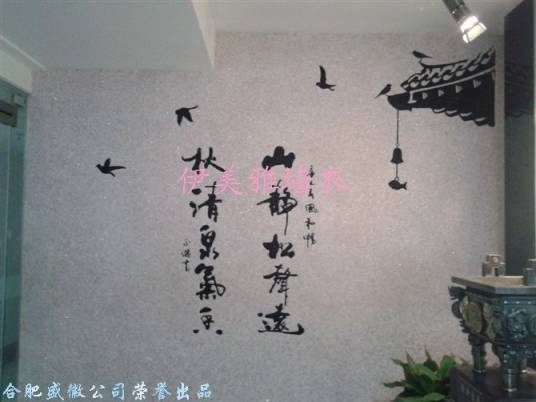 山静松聲遠
秋清泉氣香
伊美雅墙衣
合肥盛徽公司荣誉出品